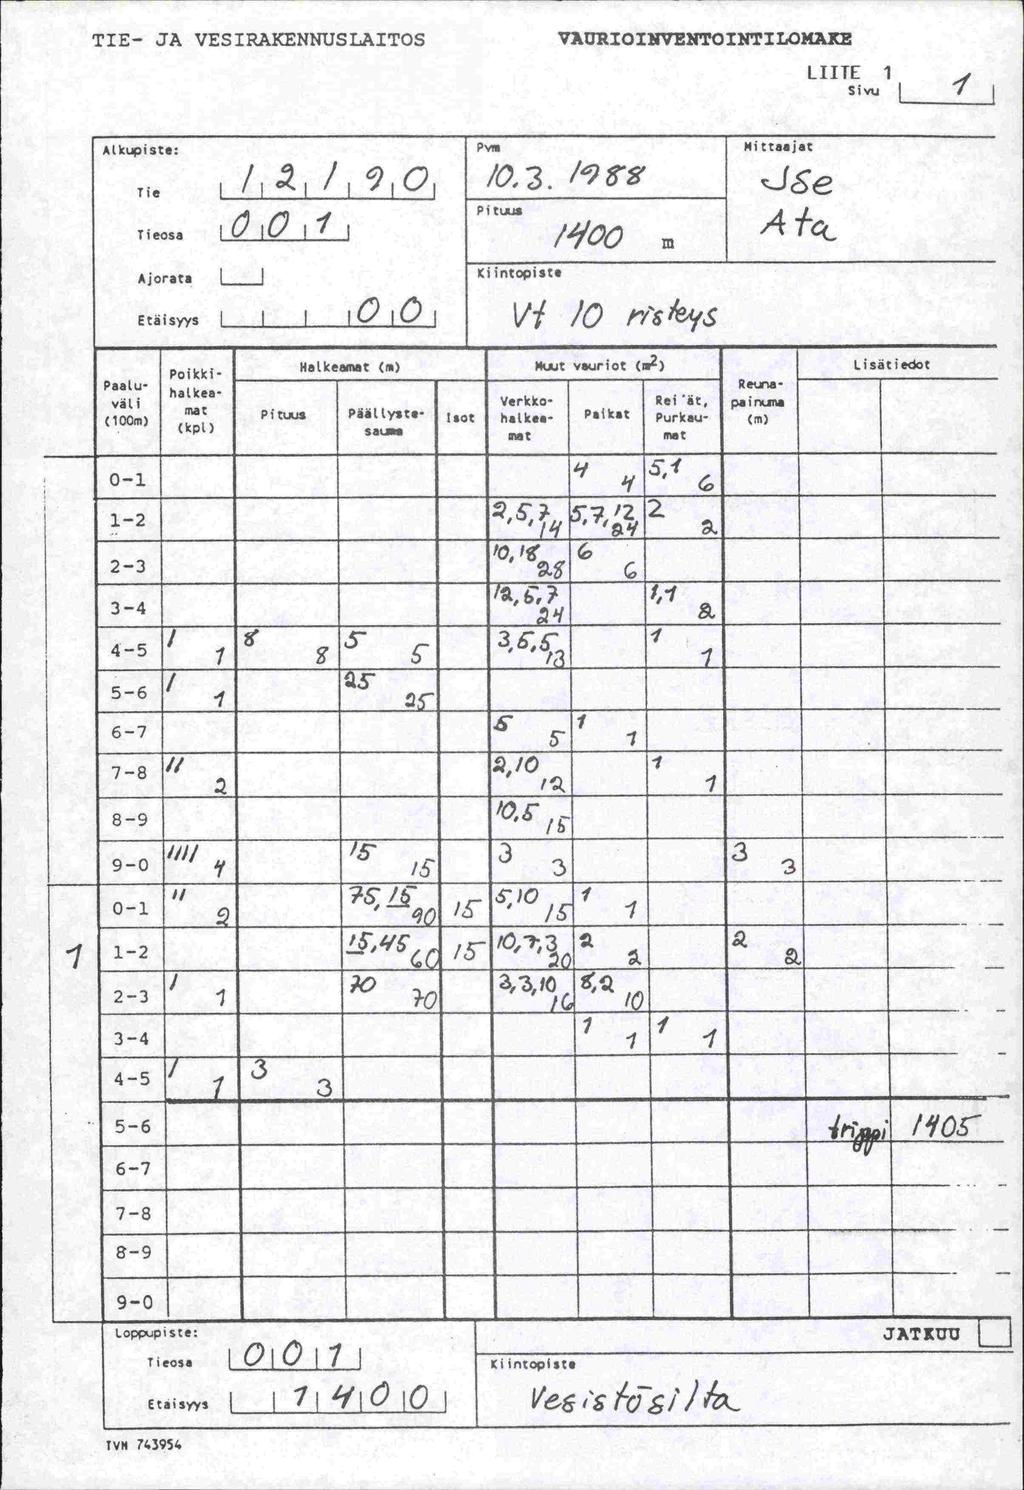 TIE- JA VESIRAKENNUSLAITOS VAURIOINVENTOINTILOMAKE
LIITE 1
Sivu 1
Alkupiste: Pvm Mittaajat
Tie 12190 10.3.1988 JSe
Tieosa 001 Pituus 1400 m Ata
Ajorata Kiintopiste
Etäisyys 00 Vt 10 risteys
Paalu- väli (100m) Poikki- halkea- mat (kpl) Halkeamat (m) Muut vauriot (m²) Reuna- painuma (m) Lisätiedot
Pituus Päällyste- sauma Isot Verkko- halkea- mat Paikat Rei'ät, Purkau- mat
0-1 4 4 5,1 6
1-2 2,5,7 14 5,7,12 24 2 2
2-3 10,18 28 6 6
3-4 12,5,7 24 1,1 2
4-5 / 1 8 8 5 5 3,5,5 13 1 1
5-6 / 1 25 25
6-7 5 5 1 1
7-8 // 2 2,10 12 1 1
8-9 10,5 15
9-0 //// 4 15 15 3 3 3 3
0-1 // 2 75, 15 90 15 5,10 15 1 1
1 1-2 15,45 60 15 10,7,3 20 2 2 2 2
2-3 / 1 70 70 3,3,10 16 8,2 10
3-4 1 1 1 1
4-5 / 1 3 3
5-6 trippi 1405
6-7
7-8
8-9
9-0
Loppupiste: JATKUU
Tieosa 001 Kiintopiste
Etäisyys 1400 Vesistösilta
TVH 743954